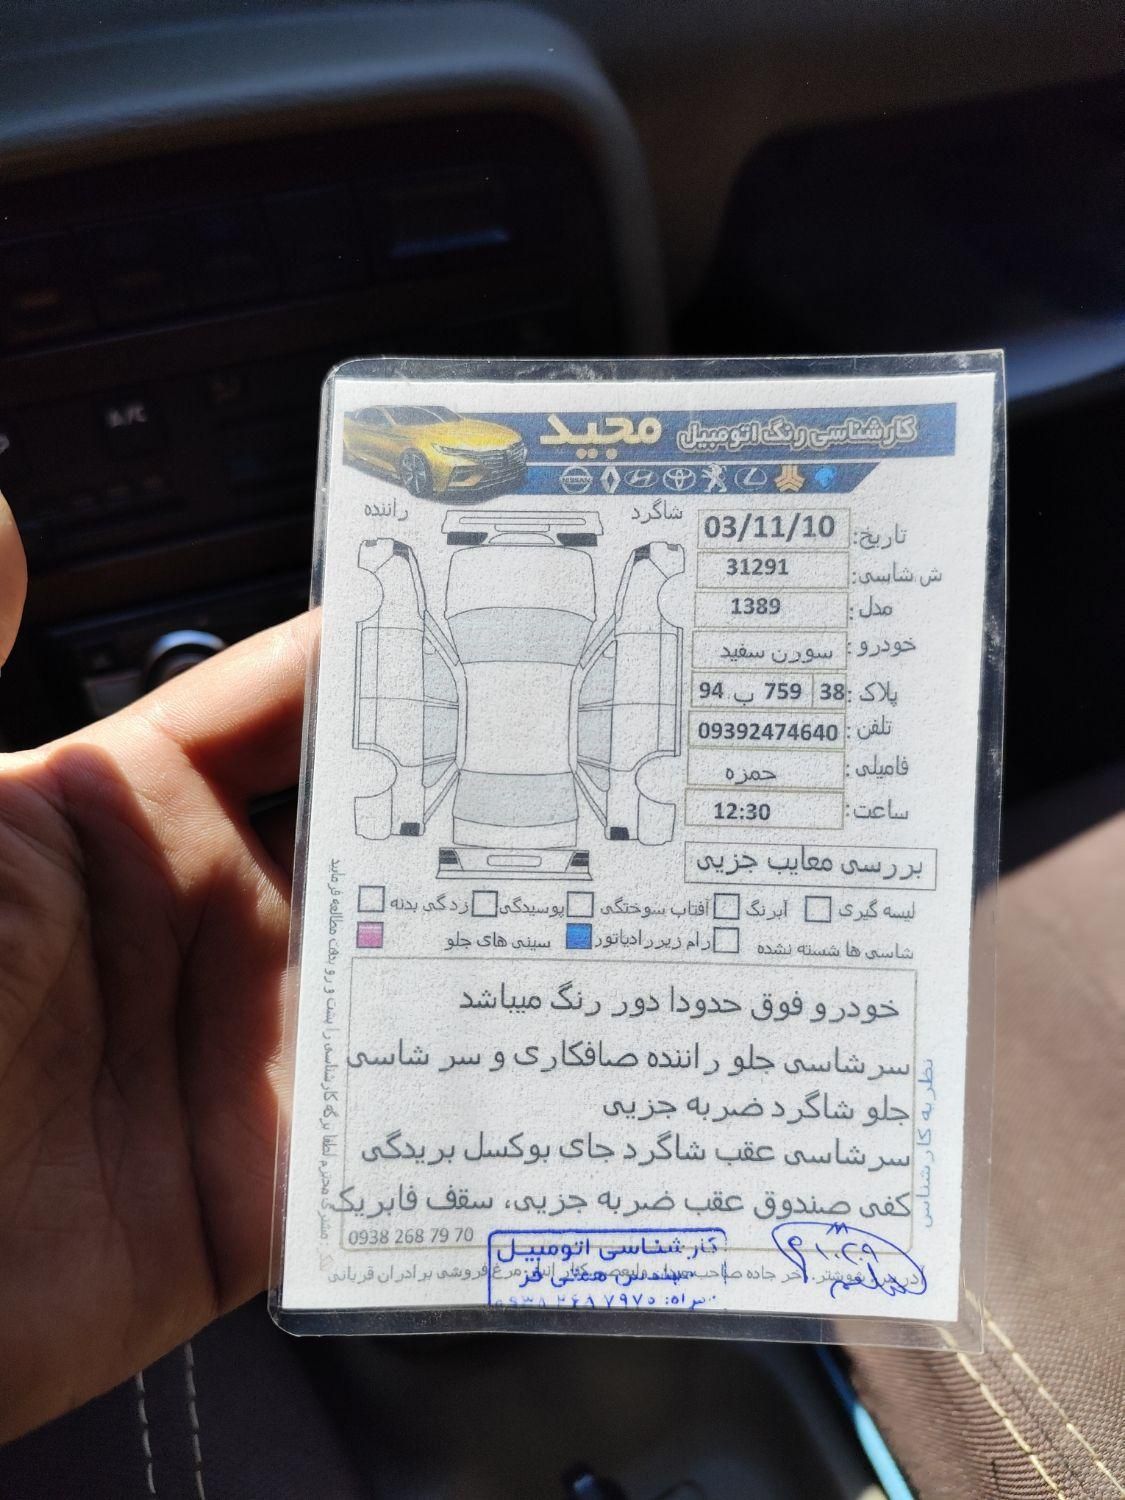 کارشناسی رنگ اتومبیل مجید
NISSAN
راننده
شاگرد
تاریخ: 03/11/10
ش شاسی: 31291
مدل: 1389
خودرو: سورن سفید
پلاک: 38 759 ب 94
تلفن: 09392474640
فامیلی: حمزه
ساعت: 12:30
بررسی معایب جزیی
لیسه گیری آبرنگ آفتاب سوختگی پوسیدگی زدگی بدنه
شاسی ها شسته نشده رام زیر رادیاتور سینی های جلو
خودرو فوق حدودا دور رنگ میباشد
سرشاسی جلو راننده صافکاری و سر شاسی
جلو شاگرد ضربه جزیی
سرشاسی عقب شاگرد جای بوکسل بریدگی
کفی صندوق عقب ضربه جزیی، سقف فابریک
نظریه کارشناس
مشتری محترم لطفا برگه کارشناسی را پشت و رو بدقت مطالعه فرمایید
0938 268 79 70
کارشناسی اتومبیل
همراه: ۰۹۳۸۲۶۸۷۹۷۰
مرغ فروشی برادران قربانی
A/C